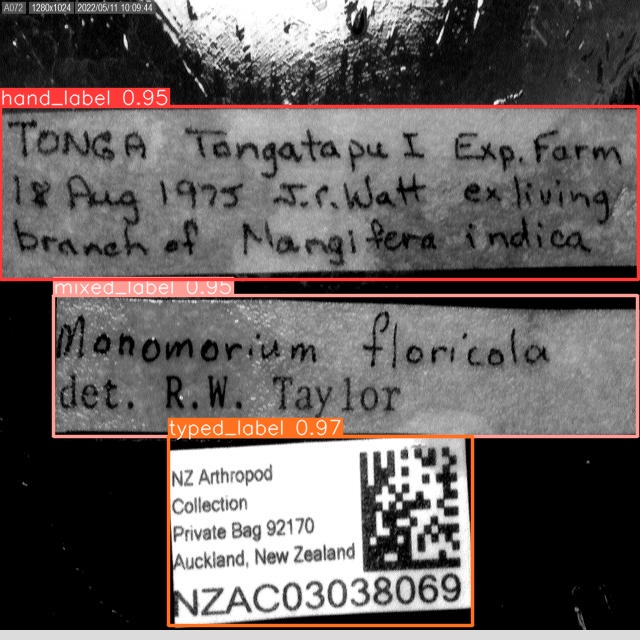 A072 1280x1024 2022/05/11 10:09:44
hand_label 0.95
TONGA Tongatapu I Exp. Farm
18 Aug 1975 J.C. Watt ex living
branch of Mangifera indica
mixed_label 0.95
Monomorium floricola
det. R.W. Taylor
typed_label 0.97
NZ Arthropod
Collection
Private Bag 92170
Auckland, New Zealand
NZAC03038069